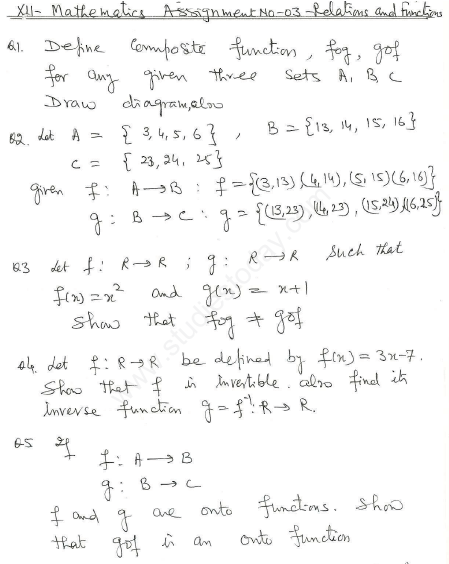 XII- Mathematics Assignment No-03 Relations and Functions
Q1. Define Composite function, fog, gof
for any given three sets A, B, C
Draw diagram, also
Q2. Let A = { 3, 4, 5, 6 } , B = {13, 14, 15, 16}
C = { 23, 24, 25}
given f: A → B : f = {(3,13) (4,14), (5,15) (6,16)}
g: B → C : g = {(13,23), (14,23), (15,24) (16,25)}
Q3 Let f: R → R ; g: R → R such that
f(x) = x² and g(x) = x+1
Show that fog ≠ gof
Q4. Let f: R → R be defined by f(x) = 3x-7.
Show that f is invertible. also find its
inverse function g = f⁻¹: R → R.
Q5 If
f: A → B
g: B → C
f and g are onto functions. Show
that gof is an onto function
www.studiestoday.com